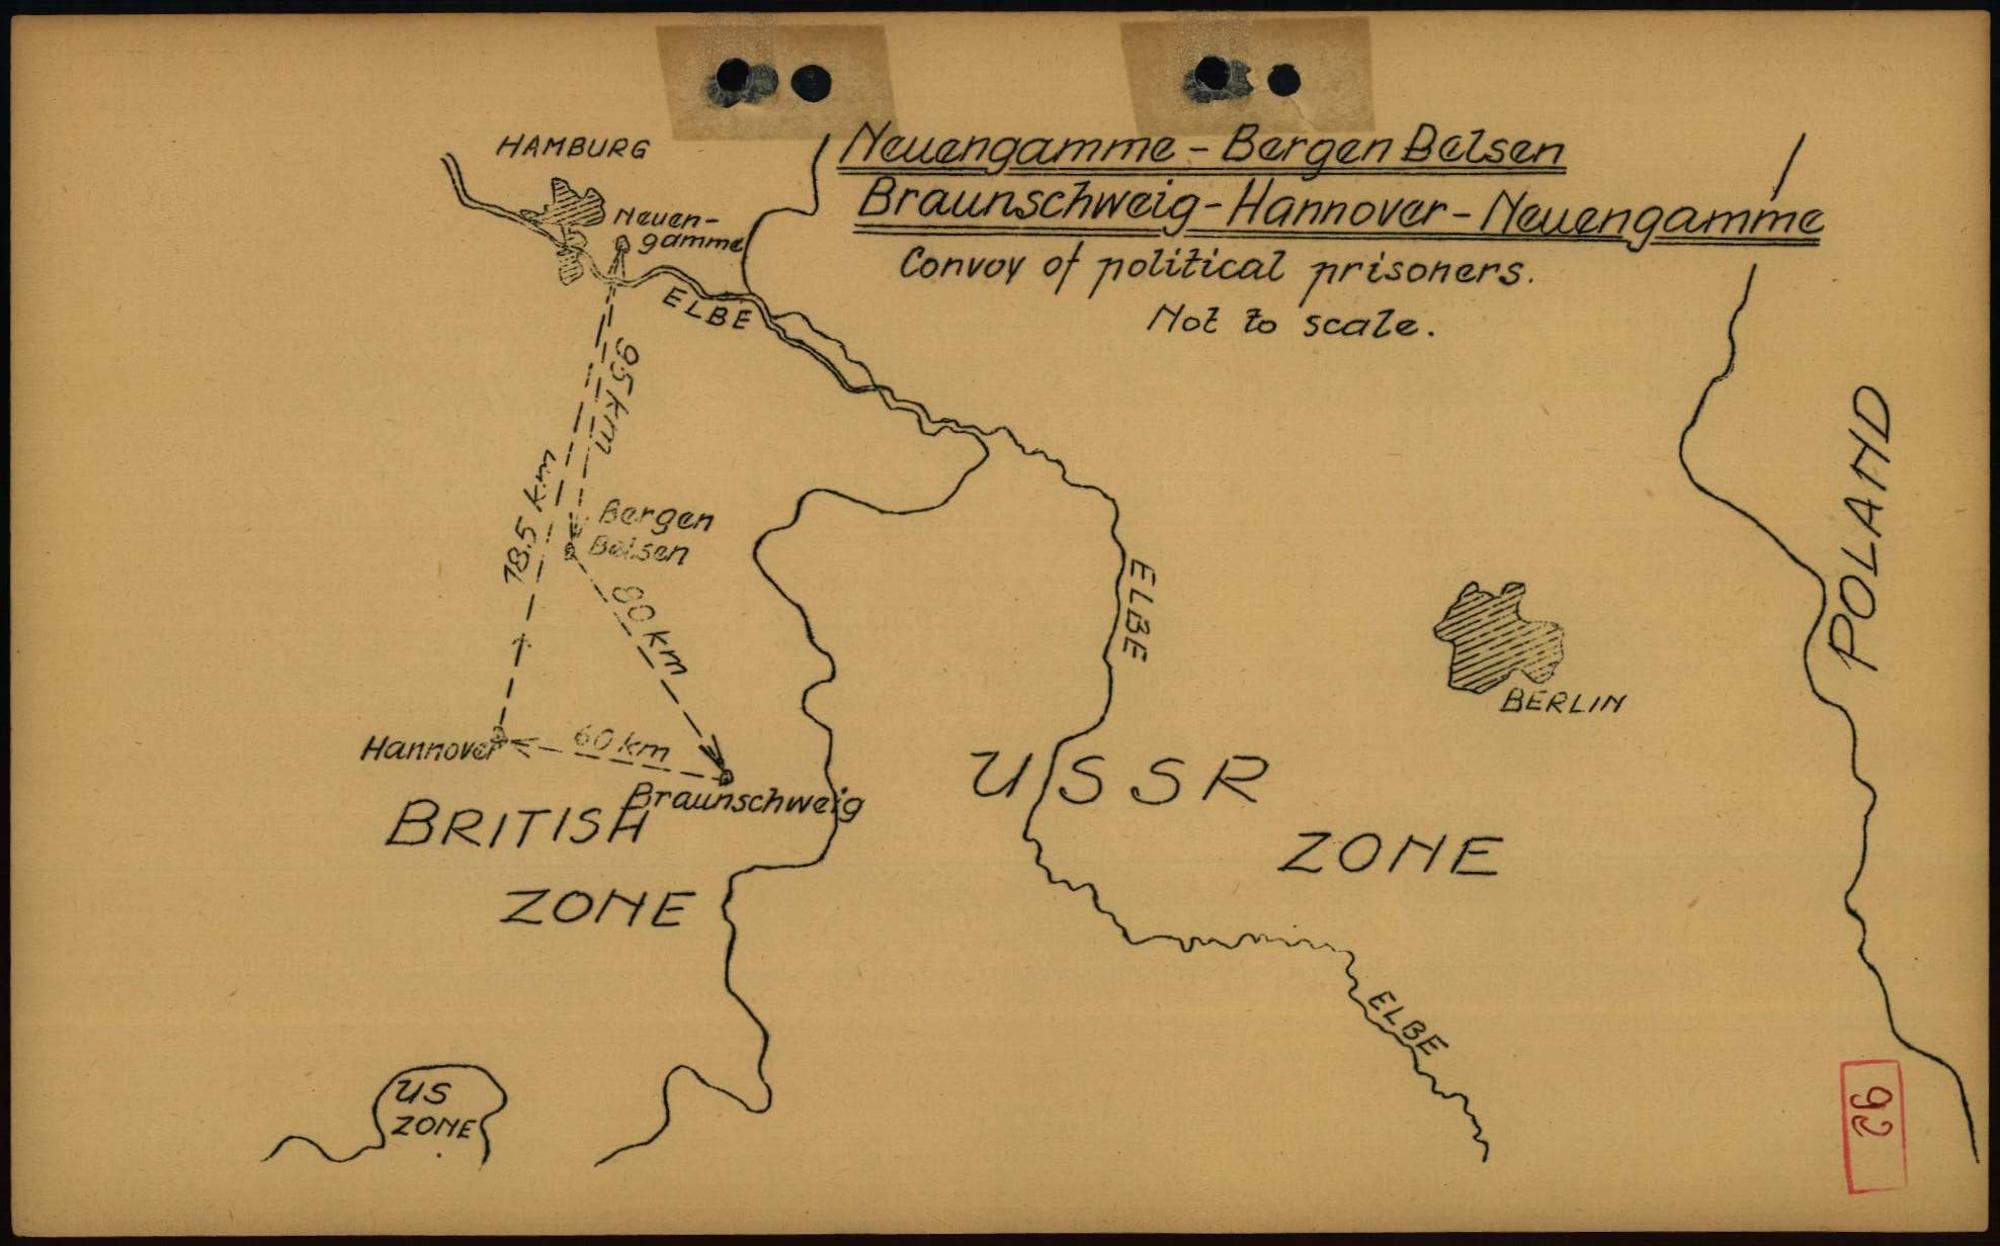 HAMBURG
Neuengamme - Bergen Belsen
Braunschweig - Hannover - Neuengamme
Convoy of political prisoners.
Not to scale.
Neuen-
gamme
ELBE
95 km
185 km
Bergen
Belsen
80 km
Hannover
60 km
Braunschweig
BRITISH
ZONE
US
ZONE
ELBE
USSR
ZONE
BERLIN
POLAND
ELBE
92